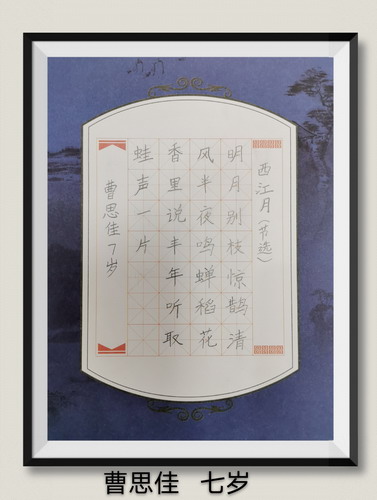 西江月（节选）
明月别枝惊鹊清
风半夜鸣蝉稻花
香里说丰年听取
蛙声一片
曹思佳7岁
曹思佳 七岁